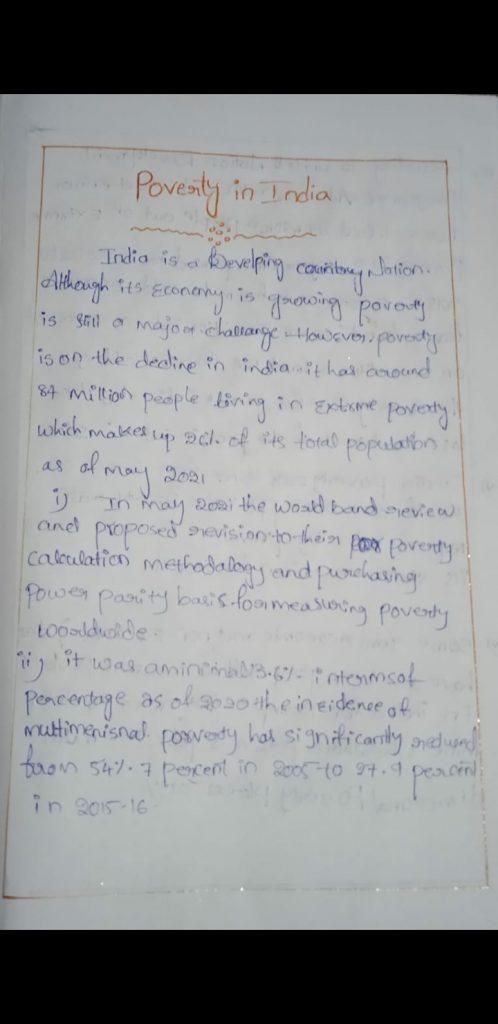 Poverty in India
India is a Develping country Nation.
Although its Economy is growing poverty
is still a major challange. However, poverty
is on the decline in india. it has around
84 million people living in Extrme poverty
which makes up 26%. of its total population
as of may 2021
i) In may 2021 the world band review
and proposed revision to their poverty
calculation methodalogy and purchasing
Power parity basis for measuring poverty
worldwide.
ii) it was aminimal 3.6%. intermsof
Percentage as of 2020 the incidence of
multimenisnal poverty has significantly reduced
from 54%.7 percent in 2005 to 27.9 percent
in 2015-16